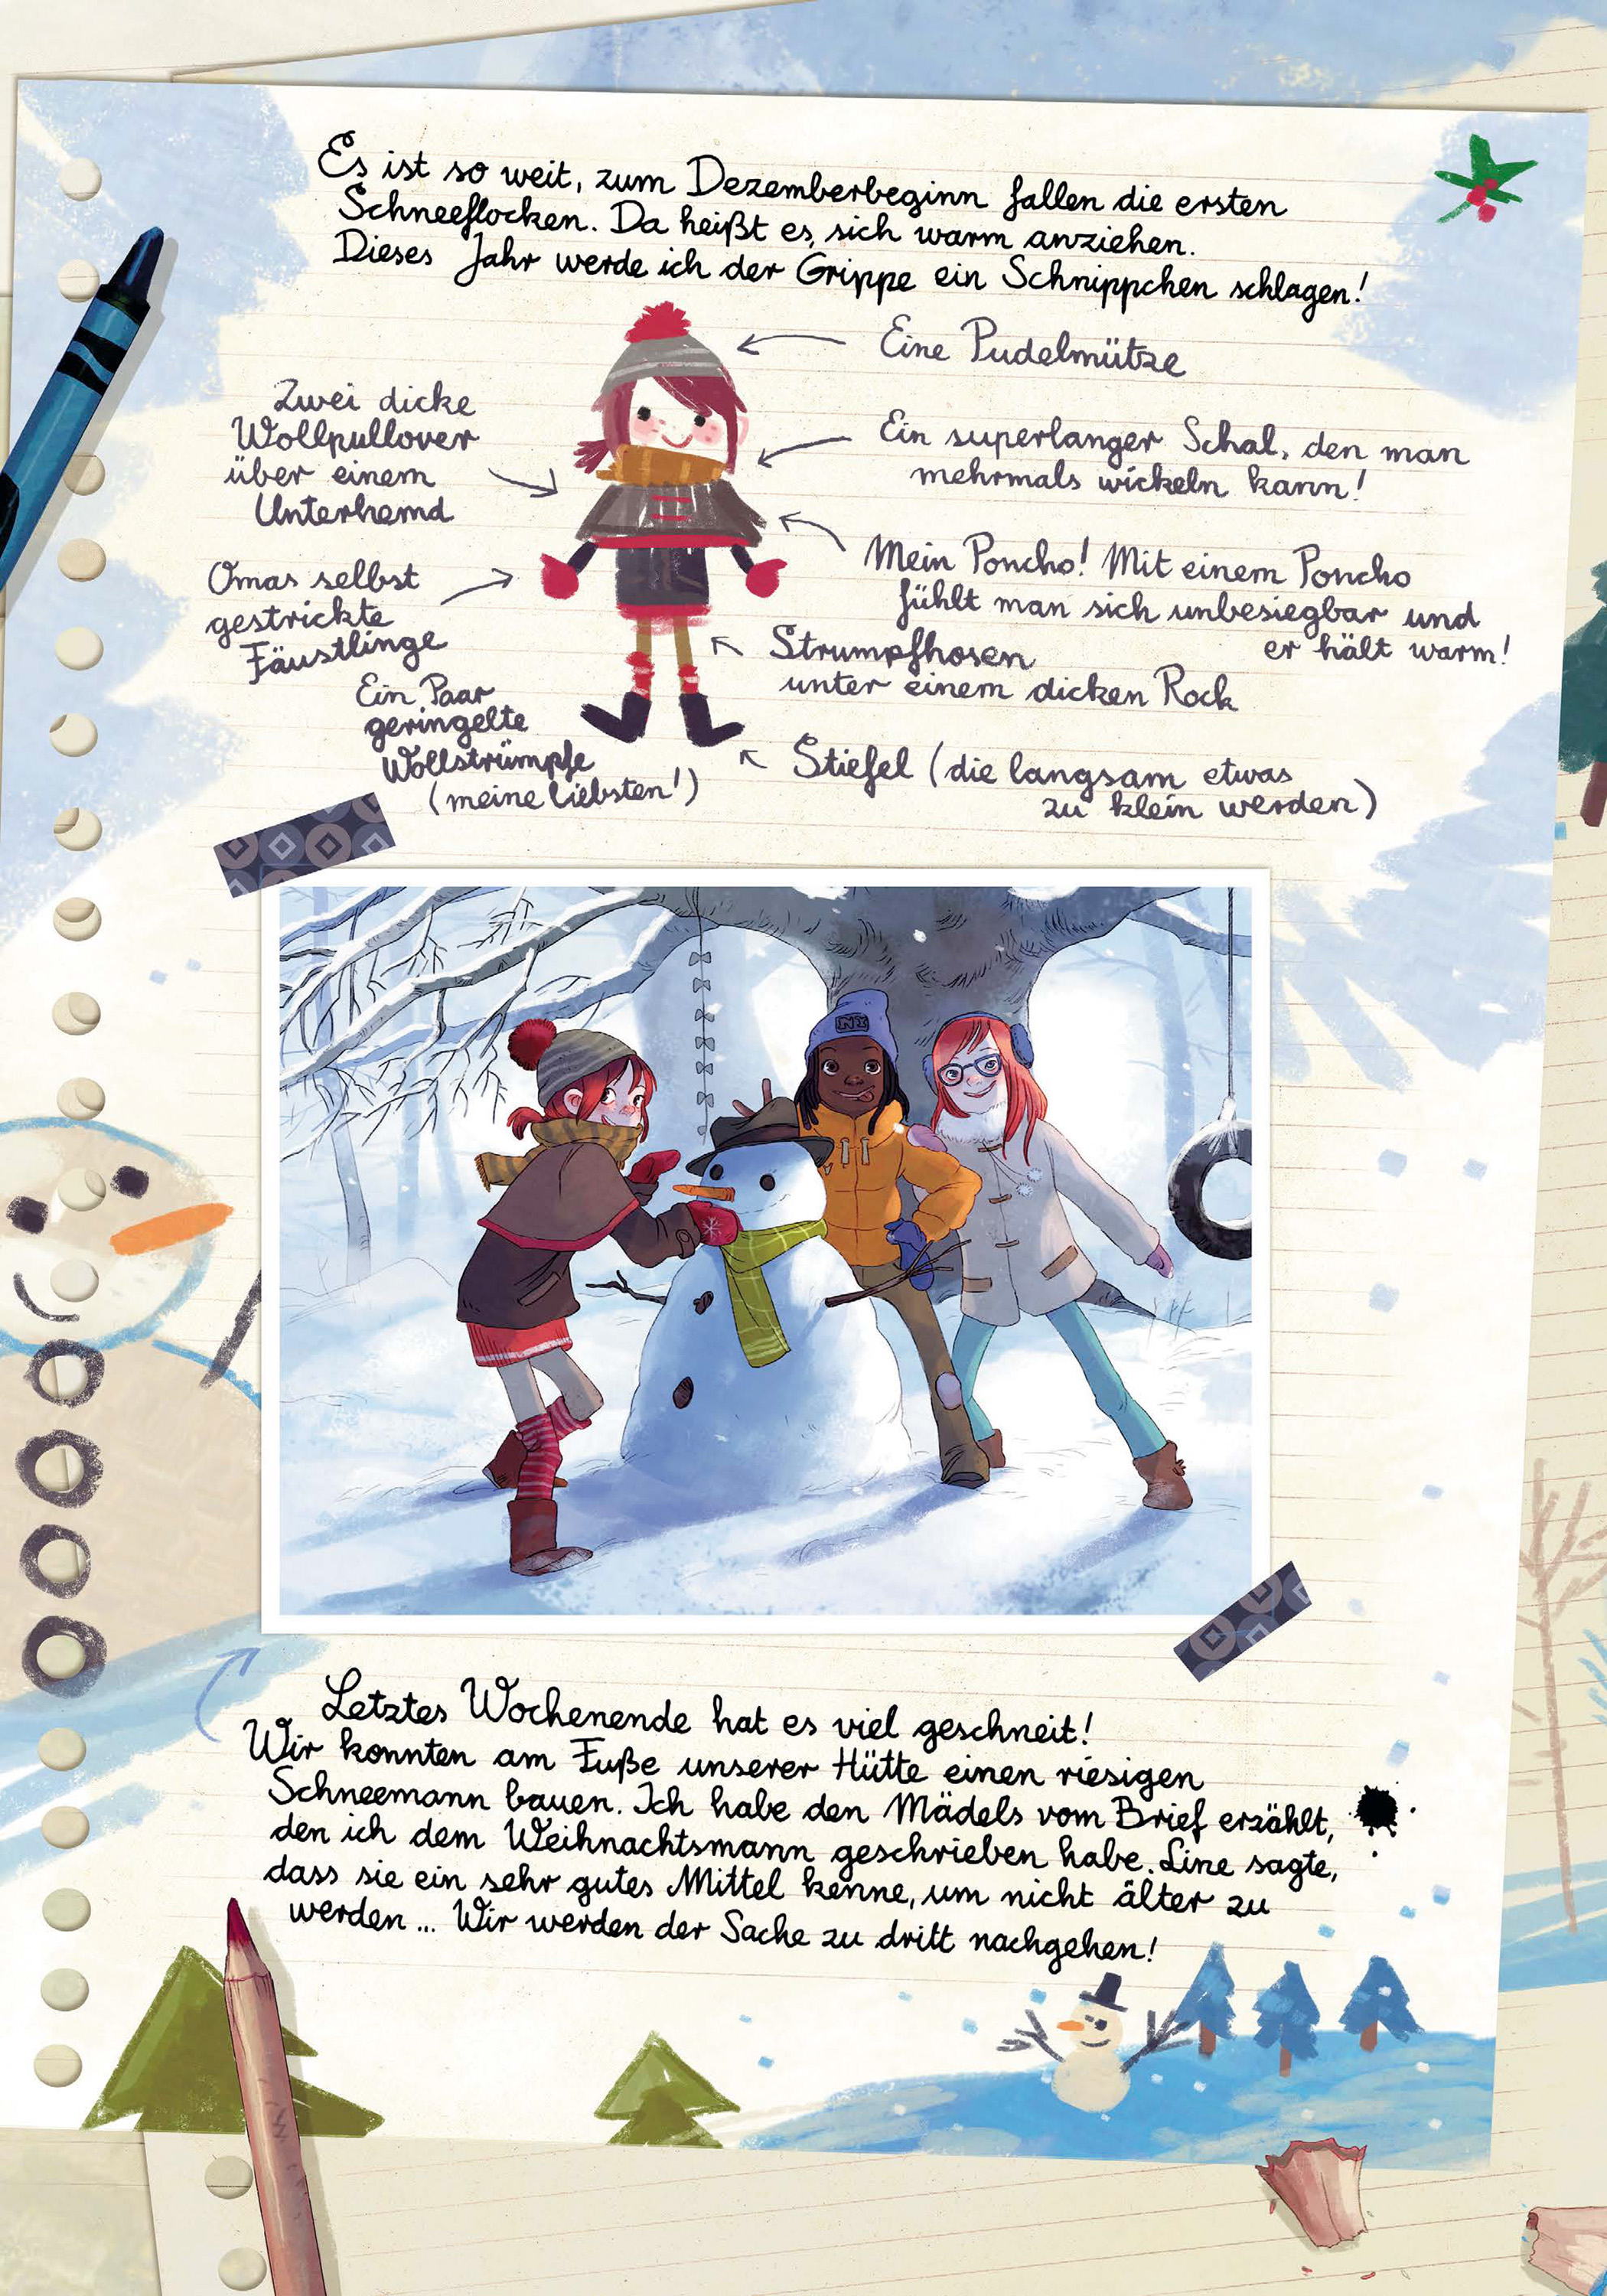 Es ist so weit, zum Dezemberbeginn fallen die ersten
Schneeflocken. Da heißt es, sich warm anziehen.
Dieses Jahr werde ich der Grippe ein Schnippchen schlagen!
Eine Pudelmütze
Zwei dicke
Wollpullover
über einem
Unterhemd
Ein superlanger Schal, den man
mehrmals wickeln kann!
Omas selbst
gestrickte
Fäustlinge
Mein Poncho! Mit einem Poncho
fühlt man sich unbesiegbar und
er hält warm!
Strumpfhosen
unter einem dicken Rock
Ein Paar
geringelte
Wollstrümpfe
(meine liebsten!)
Stiefel (die langsam etwas
zu klein werden)
NY
Letztes Wochenende hat es viel geschneit!
Wir konnten am Fuße unserer Hütte einen riesigen
Schneemann bauen. Ich habe den Mädels vom Brief erzählt,
den ich dem Weihnachtsmann geschrieben habe. Line sagte,
dass sie ein sehr gutes Mittel kenne, um nicht älter zu
werden... Wir werden der Sache zu dritt nachgehen!